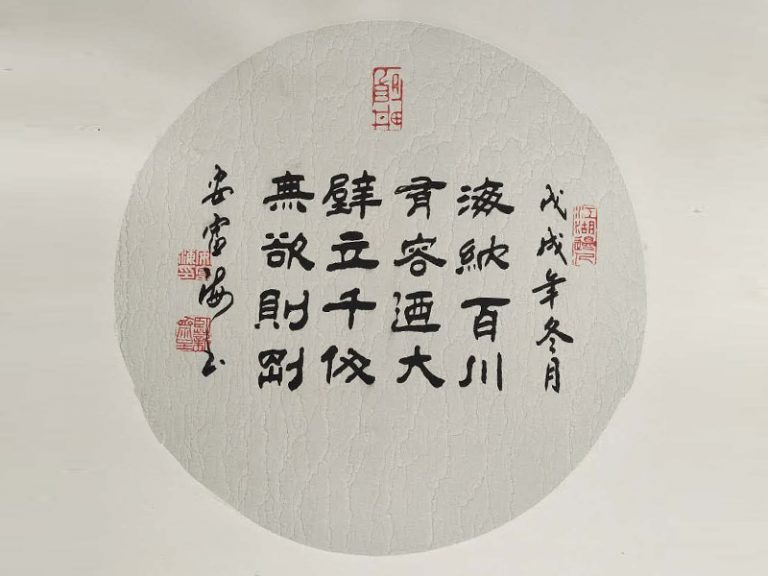 戊戌年冬月
海納百川
有容迺大
壁立千仞
無欲則剛
安富海书